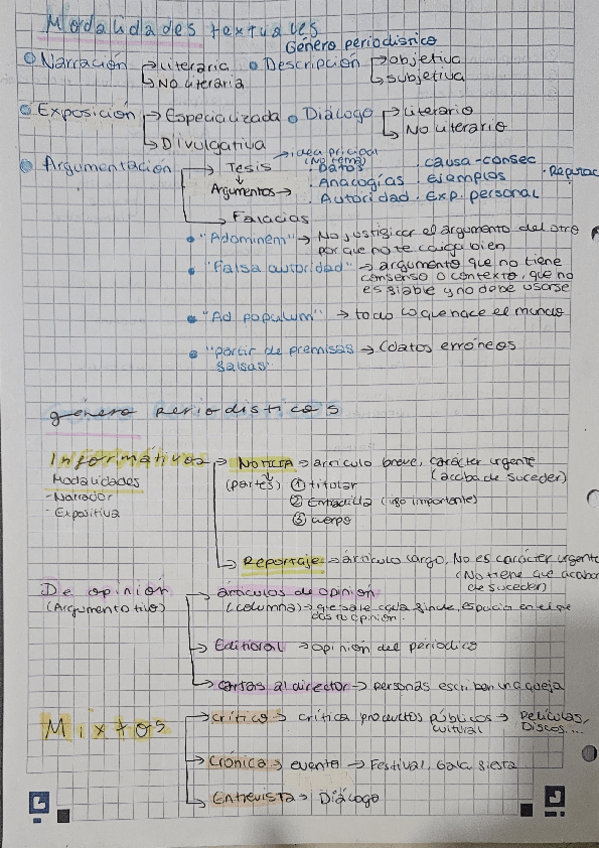 Modalidades textuales
Género periodístico
Narración → literaria
↳ No literaria
Descripción → objetiva
↳ subjetiva
Exposición → Especializada
↳ Divulgativa
Diálogo → literario
↳ No literario
Argumentación
Tesis → idea pricipal
(No tema)
Argumentos →
. Datos . causa-consec
. Analogías . ejemplos
. Autoridad . Exp. personal
Falacias
"Adominem" → No justificar el argumento del otro
por que no te caiga bien
"Falsa autoridad" → argumento que no tiene
consenso o contexto, que no
es fiable y no debe usarse
"Ad populum" → todo lo que hace el mundo
"partir de premisas → (datos erróneos
falsas"
género periodísticos
Informátivos
Modalidades
- Narrador
- Expositiva
Noticia → artículo breve, carácter urgente
(acaba de suceder)
(partes) ① titular
② Entradilla (+ importante)
③ cuerpo
Reportaje → artículo largo, No es carácter urgente
(No tiene que acabar
de suceder)
De opinión
(Argumentativo)
artículos de opinión
(columna)
das tu opinión.
Editorial → opinión del periódico
cartas al director → personas escriben una queja
Mixtos
crítica → crítica productos públicos → Películas,
cultural Discos...
Crónica → evento → Festival, Gala, fiesta
Entrevista → Diálogo